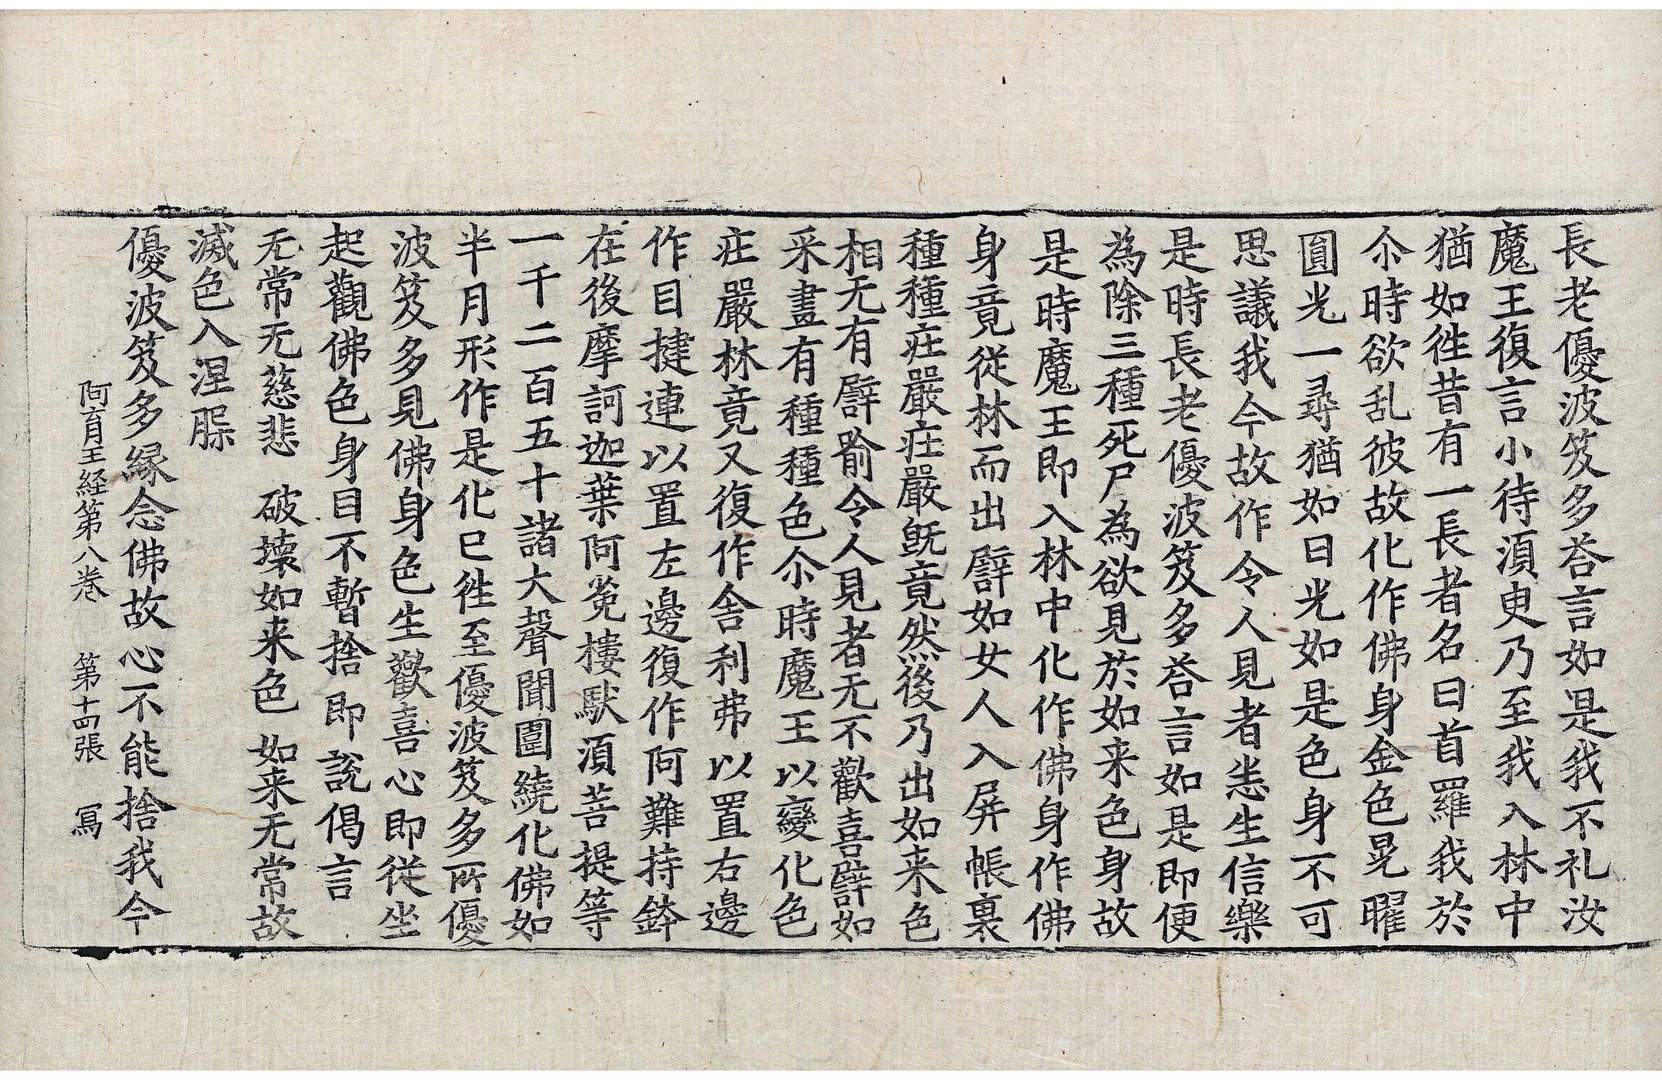 長老優波笈多荅言如是我不礼汝
魔王復言小待湏臾乃至我入林中
猶如徃昔有一長者名曰首羅我於
尒時欲乱彼故化作佛身金色晃曜
圓光一尋猶如日光如是色身不可
思議我今故作令人見者恙生信樂
是時長老優波笈多荅言如是即便
為除三種死尸為欲見於如来色身故
是時魔王即入林中化作佛身作佛
身竟従林而出譬如女人入屏帳裏
種種庄嚴庄嚴旣竟然後乃出如来色
相无有譬喻令人見者无不歡喜譬如
采畫有種種色尒時魔王以變化色
庄嚴林竟又復作舍利弗以置右邊
作目揵連以置左邊復作阿難持鉢
在後摩訶迦葉阿㝹樓馱湏菩提等
一千二百五十諸大聲聞圍繞化佛如
半月形作是化已徃至優波笈多所優
波笈多見佛身色生歡喜心即従坐
起觀佛色身目不暫捨即説偈言
无常无慈悲 破壊如来色 如来无常故
滅色入涅槃
優波笈多縁念佛故心不能捨我今
阿育王経第八巻 第十四張 寫